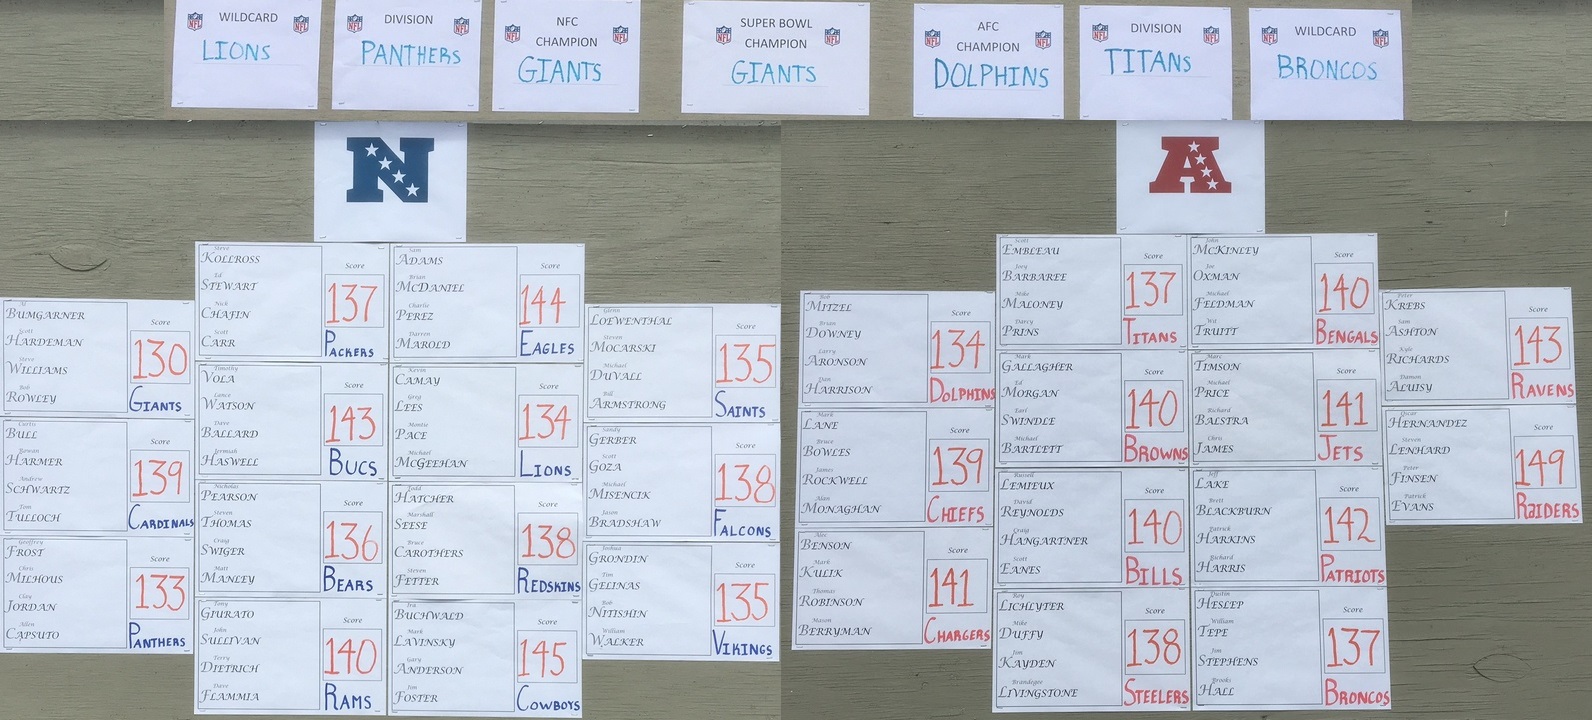 WILDCARD
LIONS
DIVISION
PANTHERS
NFC
CHAMPION
GIANTS
SUPER BOWL
CHAMPION
GIANTS
AFC
CHAMPION
DOLPHINS
DIVISION
TITANS
WILDCARD
BRONCOS
N
A
Al
BUMGARNER
Scott
HARDEMAN
Steve
WILLIAMS
Bob
ROWLEY
Score
130
GIANTS
Curtis
BULL
Rowan
HARMER
Andrew
SCHWARTZ
Tom
TULLOCH
Score
139
CARDINALS
Geoffrey
FROST
Chris
MILHOUS
Clay
JORDAN
Allen
CAPSUTO
Score
133
PANTHERS
Steve
KOLLROSS
Ed
STEWART
Nick
CHAFIN
Scott
CARR
Score
137
PACKERS
Timothy
VOLA
Lance
WATSON
Dave
BALLARD
Jeremiah
HASWELL
Score
143
BUCS
Nicholas
PEARSON
Steven
THOMAS
Craig
SWIGER
Matt
MANLEY
Score
136
BEARS
Tony
GIURATO
John
SULLIVAN
Terry
DIETRICH
Dave
FLAMMIA
Score
140
RAMS
Sam
ADAMS
Brian
MCDANIEL
Charlie
PEREZ
Darren
MAROLD
Score
144
EAGLES
Kevin
CAMAY
Greg
LEES
PACE
Michael
MCGEEHAN
Score
134
LIONS
Todd
HATCHER
Marshall
SEESE
Bruce
CAROTHERS
Steven
FETTER
Score
138
REDSKINS
Ira
BUCHWALD
Mark
LAVINSKY
Gary
ANDERSON
Jim
FOSTER
Score
145
COWBOYS
Glenn
LOEWENTHAL
Steven
MOCARSKI
Michael
DUVALL
Bill
ARMSTRONG
Score
135
SAINTS
Sandy
GERBER
Scott
GOZA
Michael
MISENCIK
Jason
BRADSHAW
Score
138
FALCONS
Joshua
GRONDIN
Tim
GELINAS
Bob
NITISHIN
William
WALKER
Score
135
VIKINGS
Bob
MITZEL
Brian
DOWNEY
Larry
ARONSON
Dan
HARRISON
Score
134
DOLPHINS
Mark
LANE
Bruce
BOWLES
James
ROCKWELL
Alan
MONAGHAN
Score
139
CHIEFS
Alec
BENSON
Mark
KULIK
Thomas
ROBINSON
Mason
BERRYMAN
Score
141
CHARGERS
Scott
EMBLEAU
Joey
BARBAREE
Mike
MALONEY
Darcy
PRINS
Score
137
TITANS
Mark
GALLAGHER
Ed
MORGAN
Earl
SWINDLE
Michael
BARTLETT
Score
140
BROWNS
Russell
LEMIEUX
David
REYNOLDS
Craig
HANGARTNER
Scott
EANES
Score
140
BILLS
Roy
LICHLYTER
Mike
DUFFY
Jim
KAYDEN
Brandegee
LIVINGSTONE
Score
138
STEELERS
John
MCKINLEY
Joe
OXMAN
Michael
FELDMAN
Wil
TRUITT
Score
140
BENGALS
Marc
TIMSON
Michael
PRICE
Richard
BALSTRA
Chris
JAMES
Score
141
JETS
Jeff
LAKE
Brett
BLACKBURN
Patrick
HARKINS
Richard
HARRIS
Score
142
PATRIOTS
Dustin
HESLEP
William
TEPE
Jim
STEPHENS
Brooks
HALL
Score
137
BRONCOS
Peter
KREBS
Sam
ASHTON
Kyle
RICHARDS
Damon
ALUISY
Score
143
RAVENS
Oscar
HERNANDEZ
Steven
LENHARD
Peter
FINSEN
Patrick
EVANS
Score
149
RAIDERS